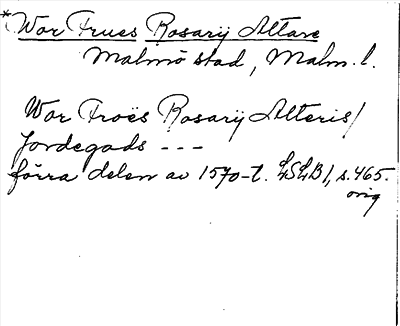 * Wor Frues Rosarij Altare
Malmö stad, Malm. l.
Wor Froës Rosarij Alteris/
Jordegods - - -
förra delen av 1570-t. LSLB1, s. 465.
orig